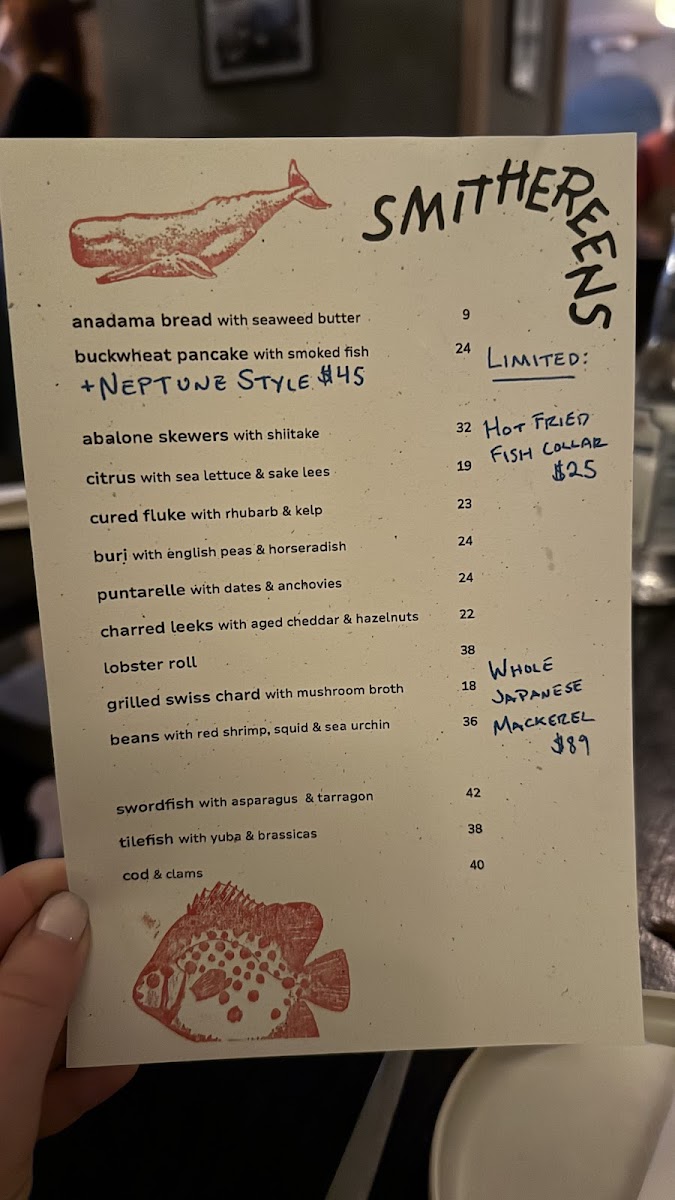 SMITHEREENS
anadama bread with seaweed butter 9
buckwheat pancake with smoked fish 24
+NEPTUNE STYLE $45
LIMITED:
abalone skewers with shiitake 32
HOT FRIED
FISH COLLAR
$25
citrus with sea lettuce & sake lees 19
cured fluke with rhubarb & kelp 23
buri with english peas & horseradish 24
puntarelle with dates & anchovies 24
charred leeks with aged cheddar & hazelnuts 22
lobster roll 38
grilled swiss chard with mushroom broth 18
beans with red shrimp, squid & sea urchin 36
WHOLE
JAPANESE
MACKEREL
$89
swordfish with asparagus & tarragon 42
tilefish with yuba & brassicas 38
cod & clams 40